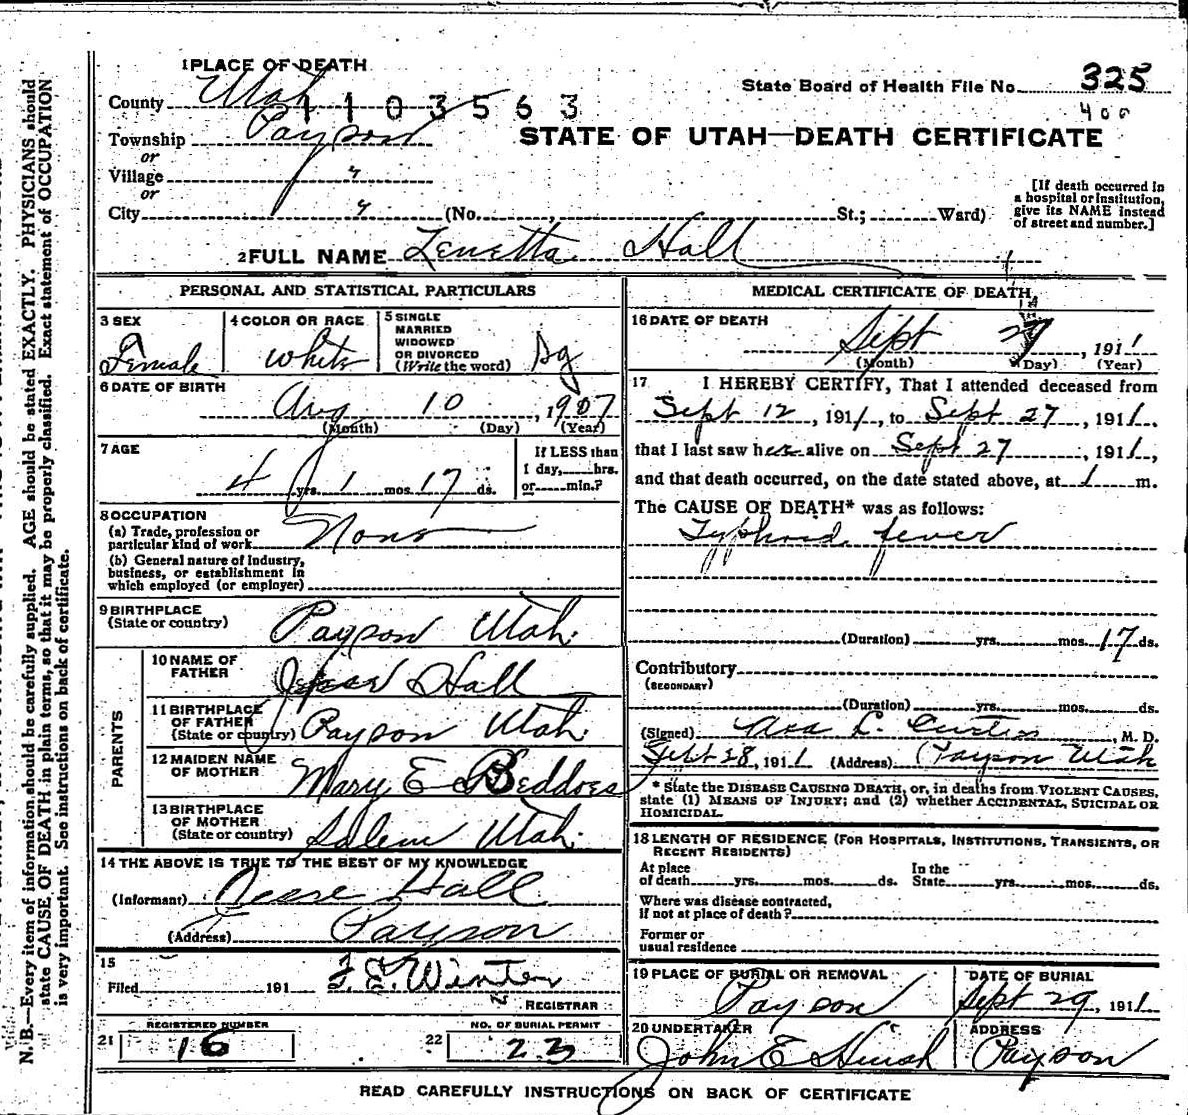 1 PLACE OF DEATH
County Utah
1103563
State Board of Health File No. 325
400
Township Payson
or
Village "
or
City "
(No. , St.; Ward)
STATE OF UTAH—DEATH CERTIFICATE
[If death occurred in
a hospital or institution,
give its NAME instead
of street and number.]
2 FULL NAME Zenetta Hall
PERSONAL AND STATISTICAL PARTICULARS
3 SEX
Female
4 COLOR OR RACE
White
5 SINGLE
MARRIED
WIDOWED
OR DIVORCED
(Write the word)
Sg
6 DATE OF BIRTH
Aug 10, 1907
(Month) (Day) (Year)
7 AGE
4 yrs. 1 mos. 17 ds.
If LESS than
1 day, hrs.
or min.?
8 OCCUPATION
(a) Trade, profession or
particular kind of work None
(b) General nature of Industry,
business, or establishment in
which employed (or employer)
9 BIRTHPLACE
(State or country) Payson Utah.
PARENTS
10 NAME OF
FATHER Jesse Hall
11 BIRTHPLACE
OF FATHER
(State or country) Payson Utah.
12 MAIDEN NAME
OF MOTHER Mary E Beddoes
13 BIRTHPLACE
OF MOTHER
(State or country) Salem Utah.
14 THE ABOVE IS TRUE TO THE BEST OF MY KNOWLEDGE
(Informant) Jesse Hall
(Address) Payson
15
Filed 191
F. E. Winter
REGISTRAR
REGISTERED NUMBER
21 16
NO. OF BURIAL PERMIT
22 23
MEDICAL CERTIFICATE OF DEATH
16 DATE OF DEATH
Sept 27, 1911
(Month) (Day) (Year)
17 I HEREBY CERTIFY, That I attended deceased from
Sept 12, 1911, to Sept 27, 1911.
that I last saw her alive on Sept 27, 1911,
and that death occurred, on the date stated above, at 1 m.
The CAUSE OF DEATH* was as follows:
Typhoid fever
(Duration) yrs. mos. 17 ds.
Contributory
(SECONDARY)
(Duration) yrs. mos. ds.
(Signed) Asa L. Curtis, M. D.
Sept 28, 1911 (Address) Payson Utah
* State the DISEASE CAUSING DEATH, or, in deaths from VIOLENT CAUSES,
state (1) MEANS OF INJURY; and (2) whether ACCIDENTAL, SUICIDAL OR
HOMICIDAL.
18 LENGTH OF RESIDENCE (FOR HOSPITALS, INSTITUTIONS, TRANSIENTS, OR
RECENT RESIDENTS)
At place
of death yrs. mos. ds.
In the
State yrs. mos. ds.
Where was disease contracted,
if not at place of death?
Former or
usual residence
19 PLACE OF BURIAL OR REMOVAL
Payson
DATE OF BURIAL
Sept 29, 1911
20 UNDERTAKER
John E
ADDRESS
Payson
READ CAREFULLY INSTRUCTIONS ON BACK OF CERTIFICATE
N. B.—Every item of information should be carefully supplied. AGE should be stated EXACTLY. PHYSICIANS should
state CAUSE OF DEATH in plain terms, so that it may be properly classified. Exact statement of OCCUPATION
is very important. See instructions on back of certificate.